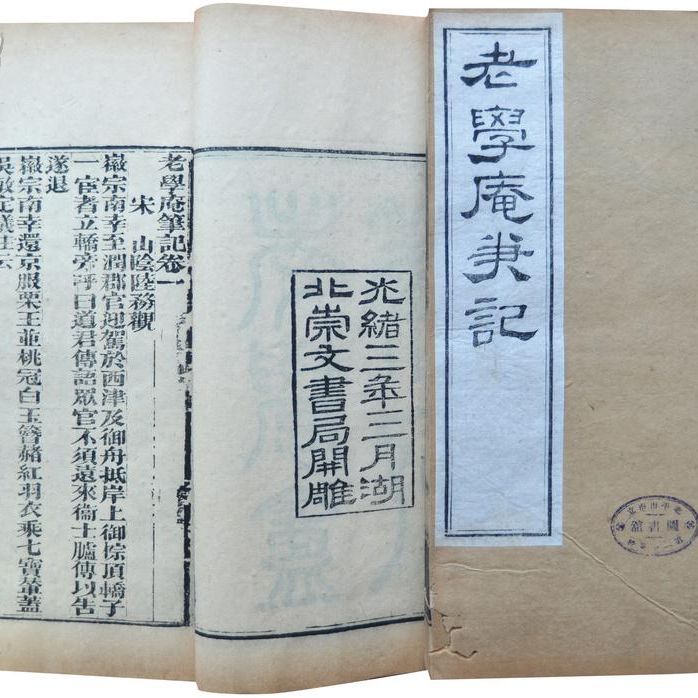 老學庵筆記
圖書館
光緒三年三月湖
北崇文書局開雕
老學庵筆記卷一
宋 山陰陸務觀
徽宗南幸至潤郡官迎駕於西津及御舟抵岸上御棕頂轎子
一宦者立轎旁呼曰道君傳語眾官不須遠來衞士臚傳以告
遂退
徽宗南幸還京服栗玉並桃冠白玉簪赭紅羽衣乘七寶輦蓋
吳敏定儀注云